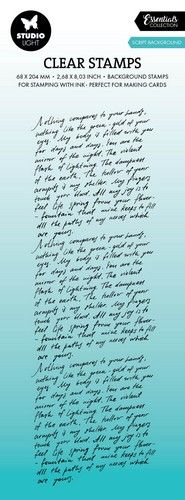 STUDIO
LIGHT
Essentials
COLLECTION
SCRIPT BACKGROUND
CLEAR STAMPS
68 X 204 MM • 2,68 X 8,03 INCH • BACKGROUND STAMPS
FOR STAMPING WITH INK • PERFECT FOR MAKING CARDS
Nothing compares to your hands,
nothing like the green-gold of your
eyes. My body is filled with you
for days and days. You are the
mirror of the night. The violent
flash of lightning. The dampness
of the earth. The hollow of your
armpits is my shelter. My fingers
touch your blood. All my joy is to
feel life spring from your flower-
-fountain that mine keeps to fill
all the paths of my nerves which
are yours.
Nothing compares to your hands,
nothing like the green-gold of your
eyes. My body is filled with you
for days and days. You are the
mirror of the night. The violent
flash of lightning. The dampness
of the earth. The hollow of your
armpits is my shelter. My fingers
touch your blood. All my joy is to
feel life spring from your flower-
-fountain that mine keeps to fill
all the paths of my nerves which
are yours.
Nothing compares to your hands,
nothing like the green-gold of your
eyes. My body is filled with you
for days and days. You are the
mirror of the night. The violent
flash of lightning. The dampness
of the earth. The hollow of your
armpits is my shelter. My fingers
touch your blood. All my joy is to
feel life spring from your flower-
-fountain that mine keeps to fill
all the paths of my nerves which
are yours.